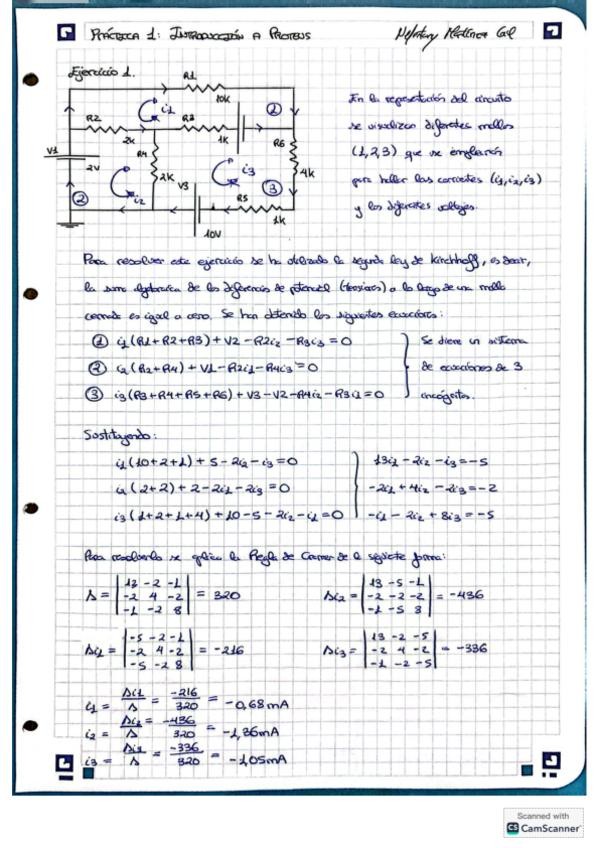 PRÁCTICA 1: INTRODUCCIÓN A PROTEUS
Ejercicio 1.
R1
10K
i1
2
R2
2K
R3
1K
R4
2K
R6
4K
i3
3
V1
2V
2
i2
V3
10V
R5
1K
En la representación del circuito
se visualizan diferentes mallas
(1,2,3) que se emplearán
para hallar las corrientes (i1,i2,i3)
y los diferentes voltajes.
Para resolver este ejercicio se ha utilizado la segunda ley de Kirchhoff, es decir,
la suma algebraica de las diferencias de potencial (tensiones) a lo largo de una malla
cerrada es igual a cero. Se han obtenido las siguientes ecuaciones:
① i1(R1+R2+R3)+V2-R2i2-R3i3=0
② i2(R2+R4)+V1-R2i1-R4i3=0
③ i3(R3+R4+R5+R6)+V3-V2-R4i2-R3i1=0
Se tiene un sistema
de ecuaciones de 3
incógnitas.
Sustituyendo:
i1(10+2+1)+5-2i2-i3=0
i2(2+2)+2-2i1-2i3=0
i3(1+2+1+4)+10-5-2i2-i1=0
13i1-2i2-i3=-5
-2i1+4i2-2i3=-2
-i1-2i2+8i3=-5
Para resolverlo se aplica la Regla de Cramer de la siguiente forma:
Δ= |13 -2 -1| = 320
|-2 4 -2|
|-1 -2 8|
Δi2= |13 -5 -1| = -436
|-2 -2 -2|
|-1 -5 8|
Δi1= |-5 -2 -1| = -216
|-2 4 -2|
|-5 -2 8|
Δi3= |13 -2 -5| = -336
|-2 4 -2|
|-1 -2 -5|
i1 = Δi1/Δ = -216/320 = -0,68mA
i2 = Δi2/Δ = -436/320 = -1,36mA
i3 = Δi3/Δ = -336/320 = -1,05mA
Scanned with
CS CamScanner